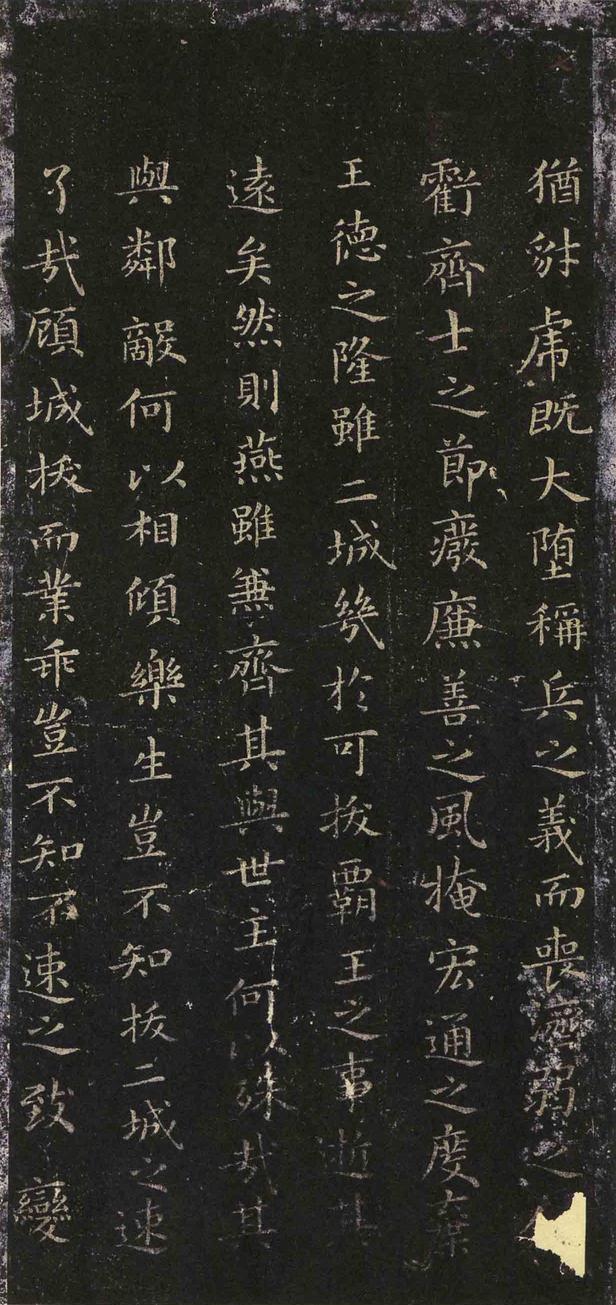 猶豺虎既大堕稱兵之義而喪濟弱之
虧齊士之節癈廉善之風掩宏通之度棄
王德之隆雖二城幾於可拔霸王之事逝其
遠矣然則燕雖兼齊其與世主何以殊哉其
與鄰敵何以相傾樂生豈不知拔二城之速
了哉顧城拔而業乖豈不知不速之致變